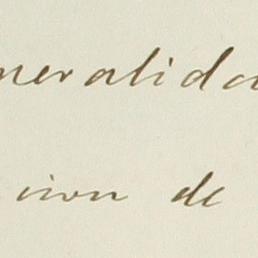 neralida
cion de